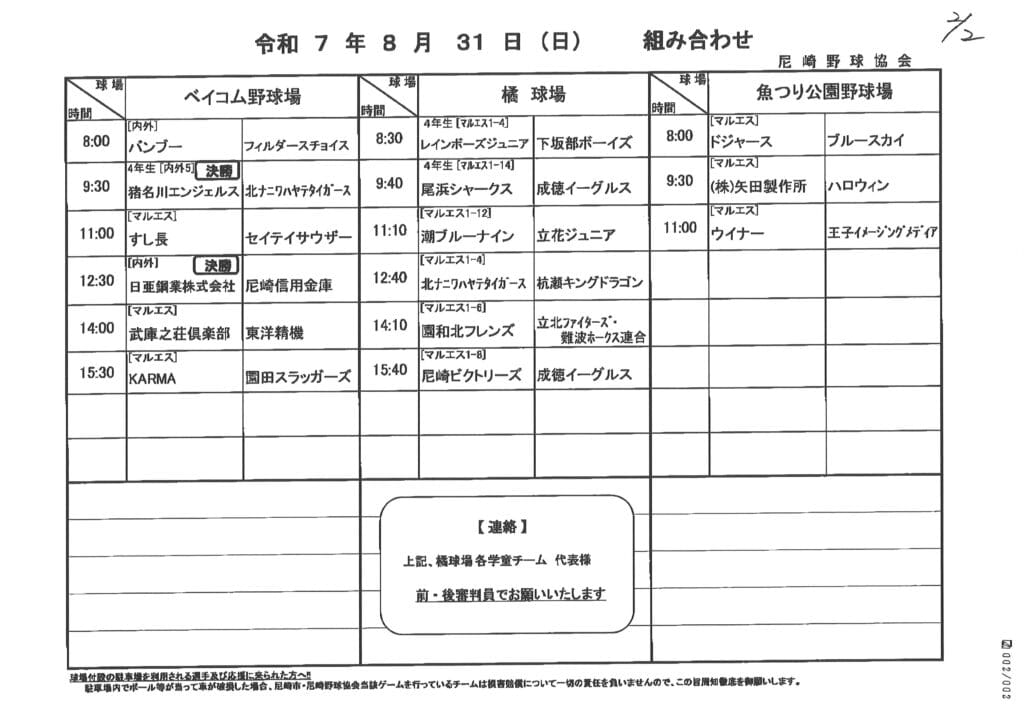 2/2
令和 7 年 8 月 31 日（日） 組み合わせ
尼崎野球協会
球場 時間 ベイコム野球場
8:00 [内外] バンブー フィルダースチョイス
9:30 4年生 [内外5] 決勝 猪名川エンジェルス 北ナニワハヤテタイガース
11:00 [マルエス] すし長 セイテイサウザー
12:30 [内外] 決勝 日亜鋼業株式会社 尼崎信用金庫
14:00 [マルエス] 武庫之荘倶楽部 東洋精機
15:30 [マルエス] KARMA 園田スラッガーズ
球場 時間 橘 球場
8:30 4年生 [マルエス1-4] レインボーズジュニア 下坂部ボーイズ
9:40 4年生 [マルエス1-14] 尾浜シャークス 成徳イーグルス
11:10 [マルエス1-12] 潮ブルーナイン 立花ジュニア
12:40 [マルエス1-4] 北ナニワハヤテタイガース 杭瀬キングドラゴン
14:10 [マルエス1-6] 園和北フレンズ 立北ファイターズ・難波ホークス連合
15:40 [マルエス1-8] 尼崎ビクトリーズ 成徳イーグルス
球場 時間 魚つり公園野球場
8:00 [マルエス] ドジャース ブルースカイ
9:30 [マルエス] (株)矢田製作所 ハロウィン
11:00 [マルエス] ウイナー 王子イメージングメディア
【 連絡 】
上記、橘球場各学童チーム 代表様
前・後審判員でお願いいたします
球場付設の駐車場を利用される選手及び応援に来られた方へ!!
駐車場内でボール等が当って車が破損した場合、尼崎市・尼崎野球協会当該ゲームを行っているチームは損害賠償について一切の責任を負いませんので、この旨周知徹底を御願いします。
002/002